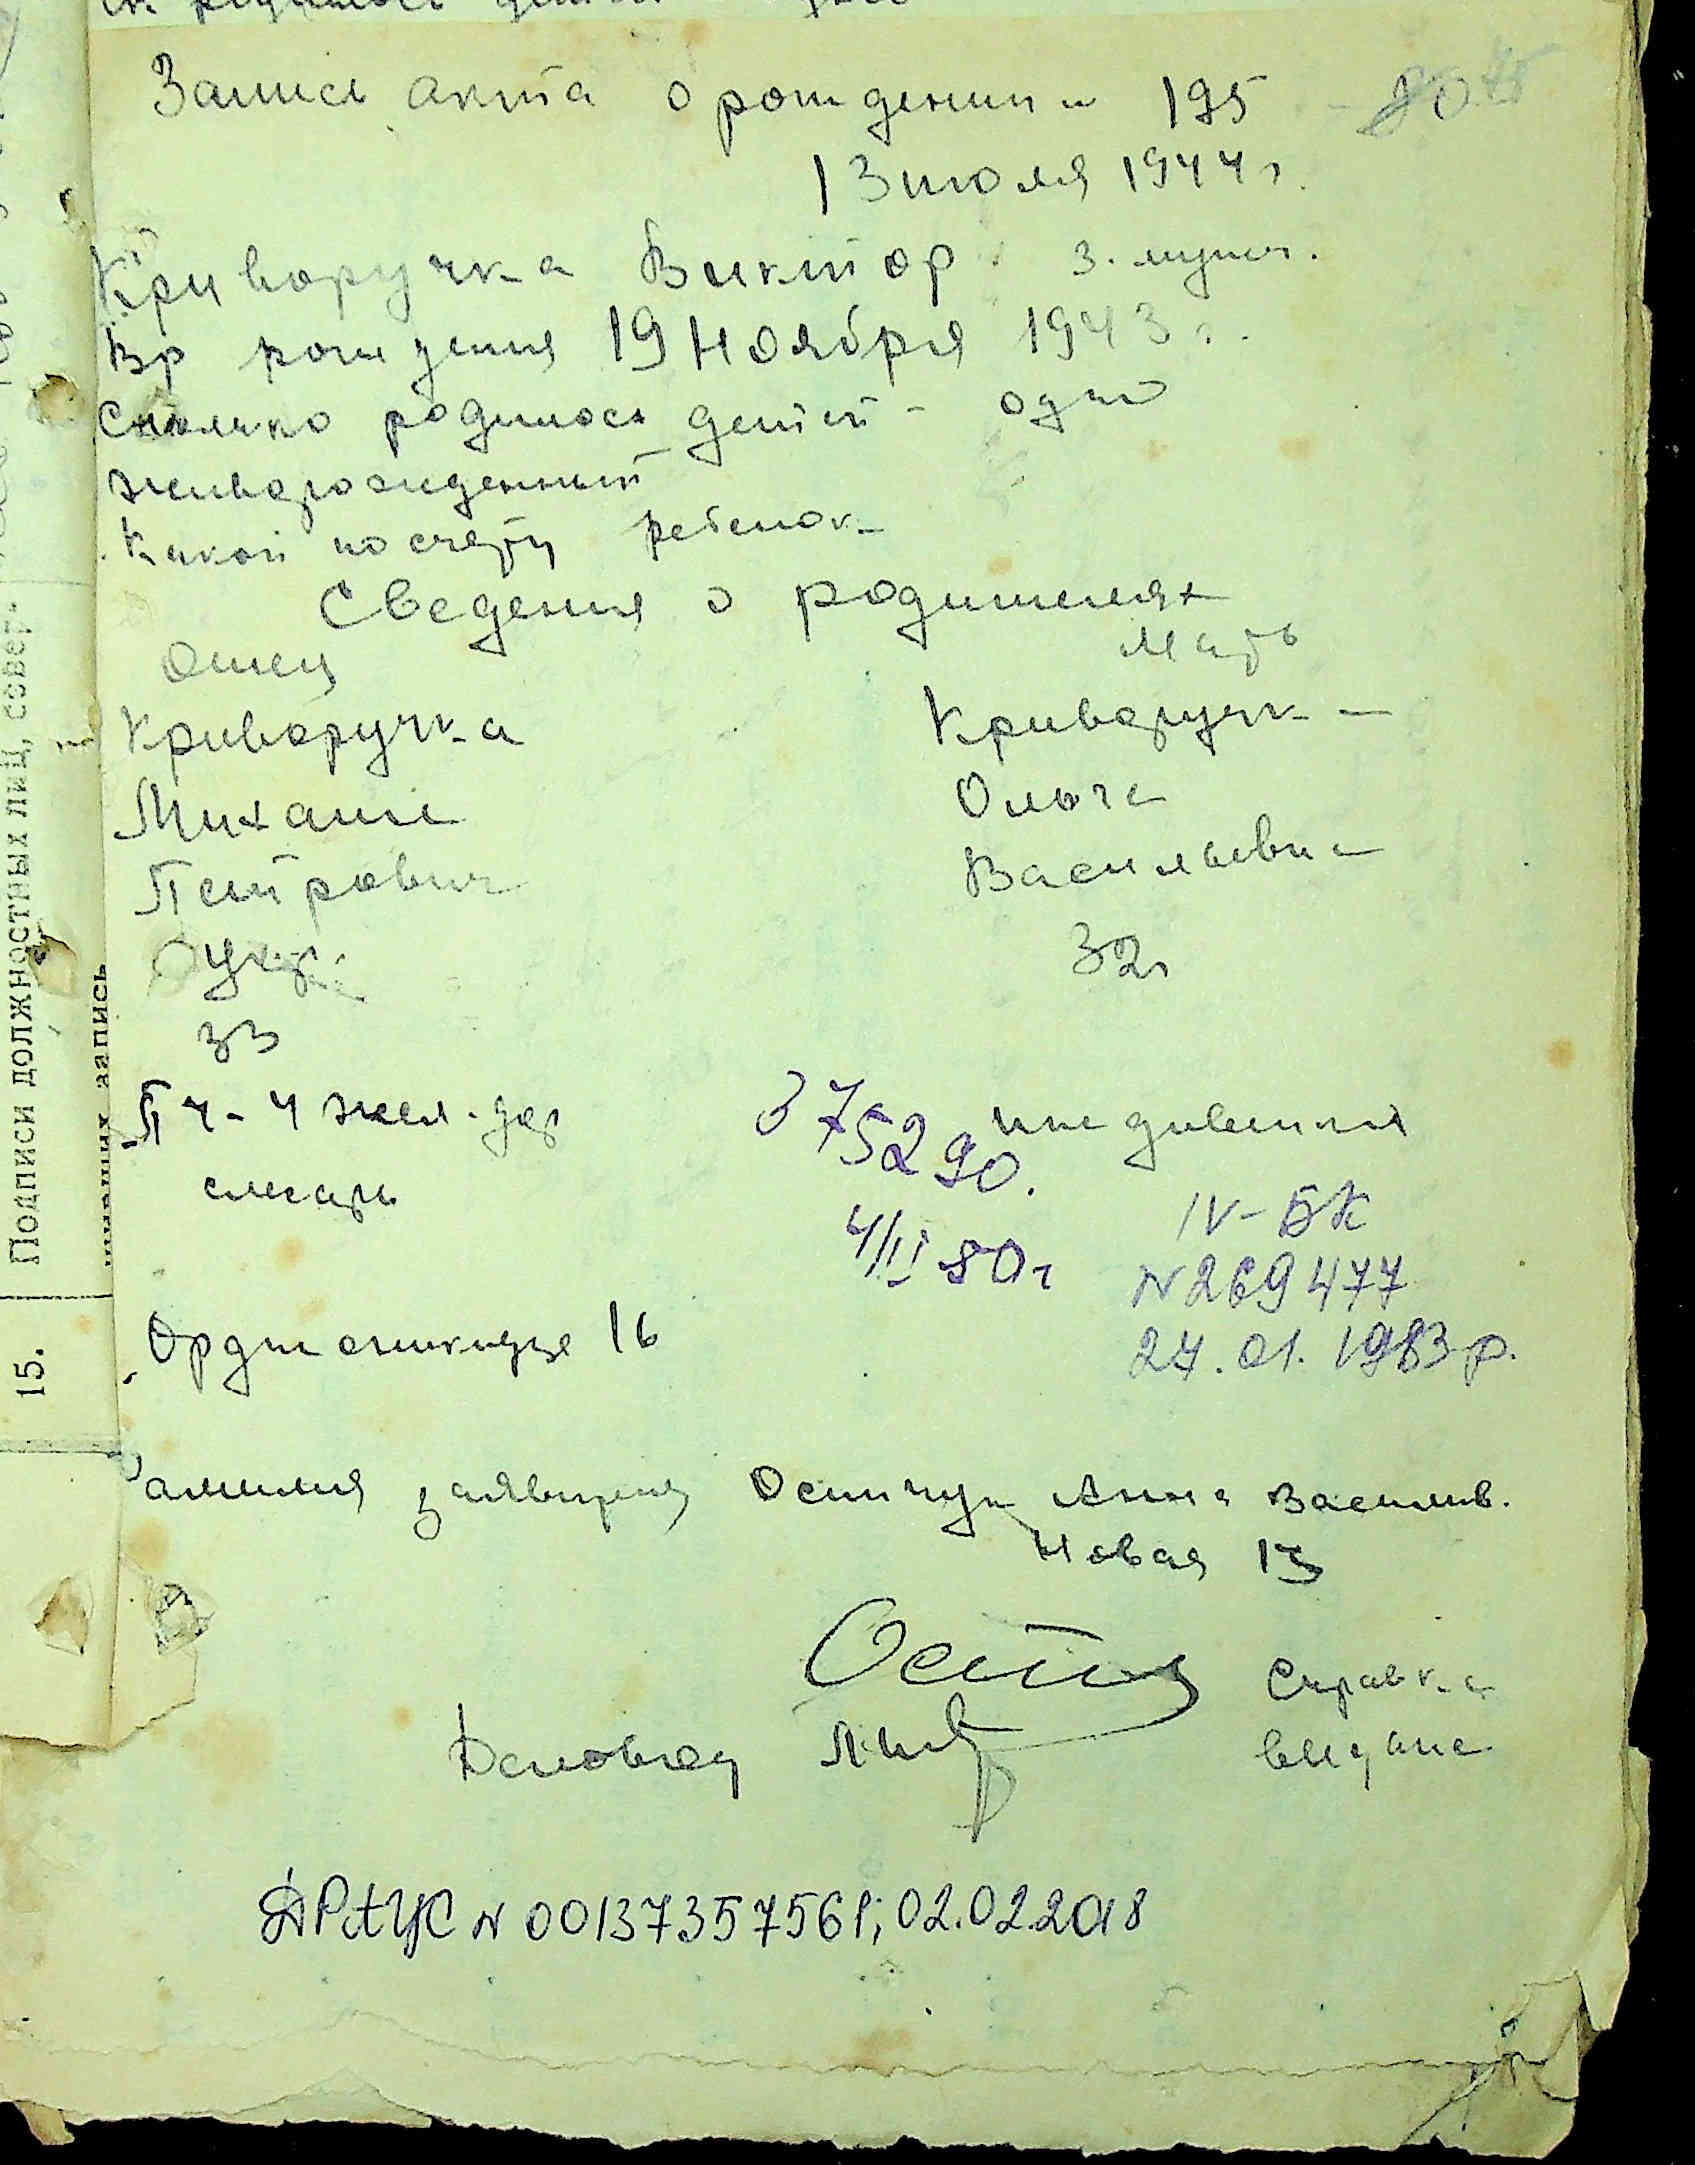 Запись акта о рождении 195
13 июля 1944 г.
Криворучка Виктор 3. мужч.
Вр рождения 19 Ноября 1943 г.
Сколько родилось детей - одно
живорожденный
Какой по счету ребенок
Сведения о родителях
Отец Мать
Криворучка Криворучка
Михаил Ольга
Петрович Васильевна
Укр. 32 г
33
ПЧ-4 жел-дор иждивения
375290.
слесарь
4/II 80 г
IV-БК
N 269477
Орджоникидзе 16
27.01.1983 р.
Фамилия заявителя Осипчук Анна Васильев.
Новая 13
Справка
Деловод выдана
ДРАЦС N 00137357561; 02.02.2018
Подписи должностных лиц, совер-
шивших запись
15.